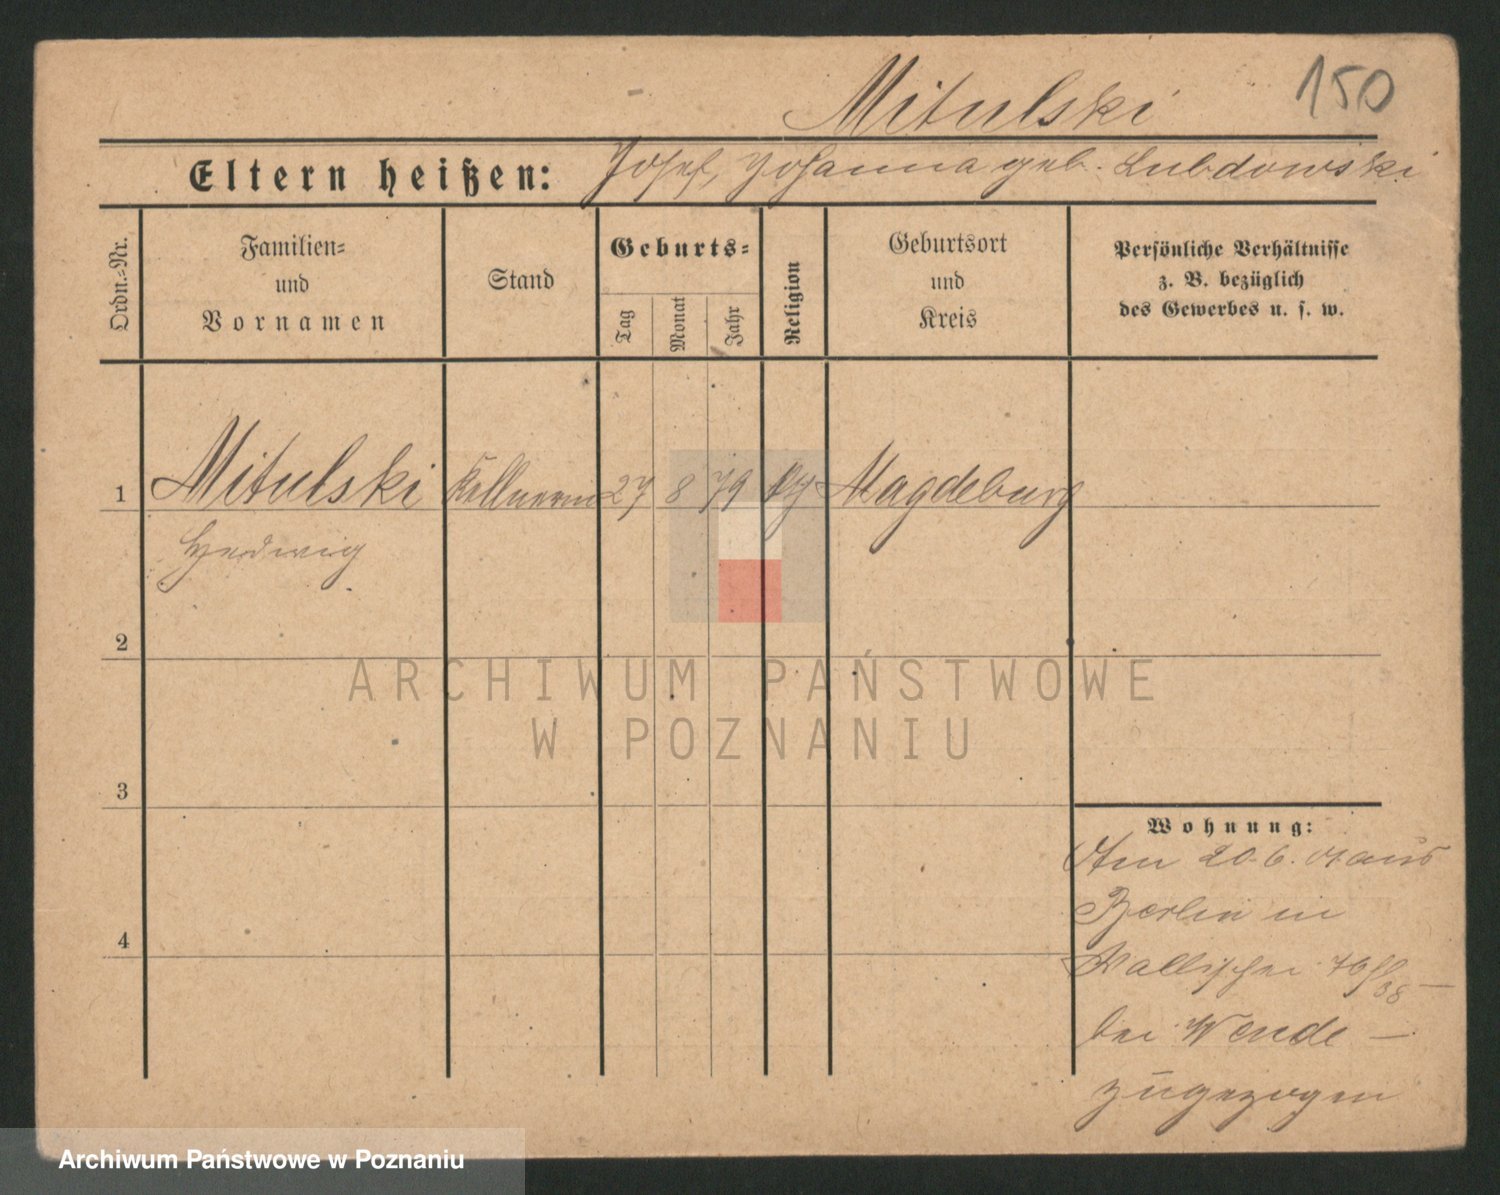 150
Mitulski
Eltern heißen: Josef, Johanna geb. Lubdowski
Ordn.-Nr.
Familien-
und
Vornamen
Stand
Geburts-
Tag
Monat
Jahr
Religion
Geburtsort
und
Kreis
Persönliche Verhältnisse
z. B. bezüglich
des Gewerbes u. s. w.
1 Mitulski Kellnerin 27 8 79 Magdeburg
Hedwig
2
3
4
Wohnung:
Am 20.6. 01 aus
Berlin in
Wallischei
bei Wende –
zugezogen
ARCHIWUM PAŃSTWOWE
W POZNANIU
Archiwum Państwowe w Poznaniu